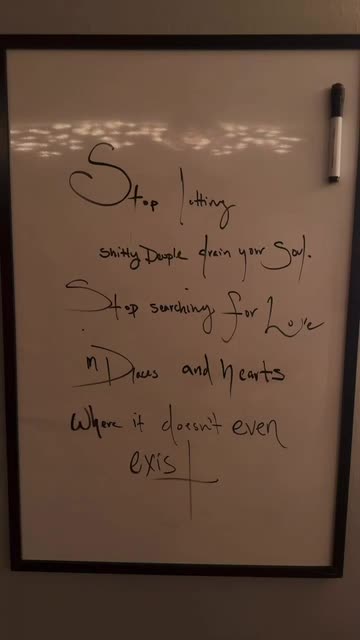 Stop letting
shitty People drain your Soul.
Stop searching for Love
in Places and hearts
Where it doesn't even
exist